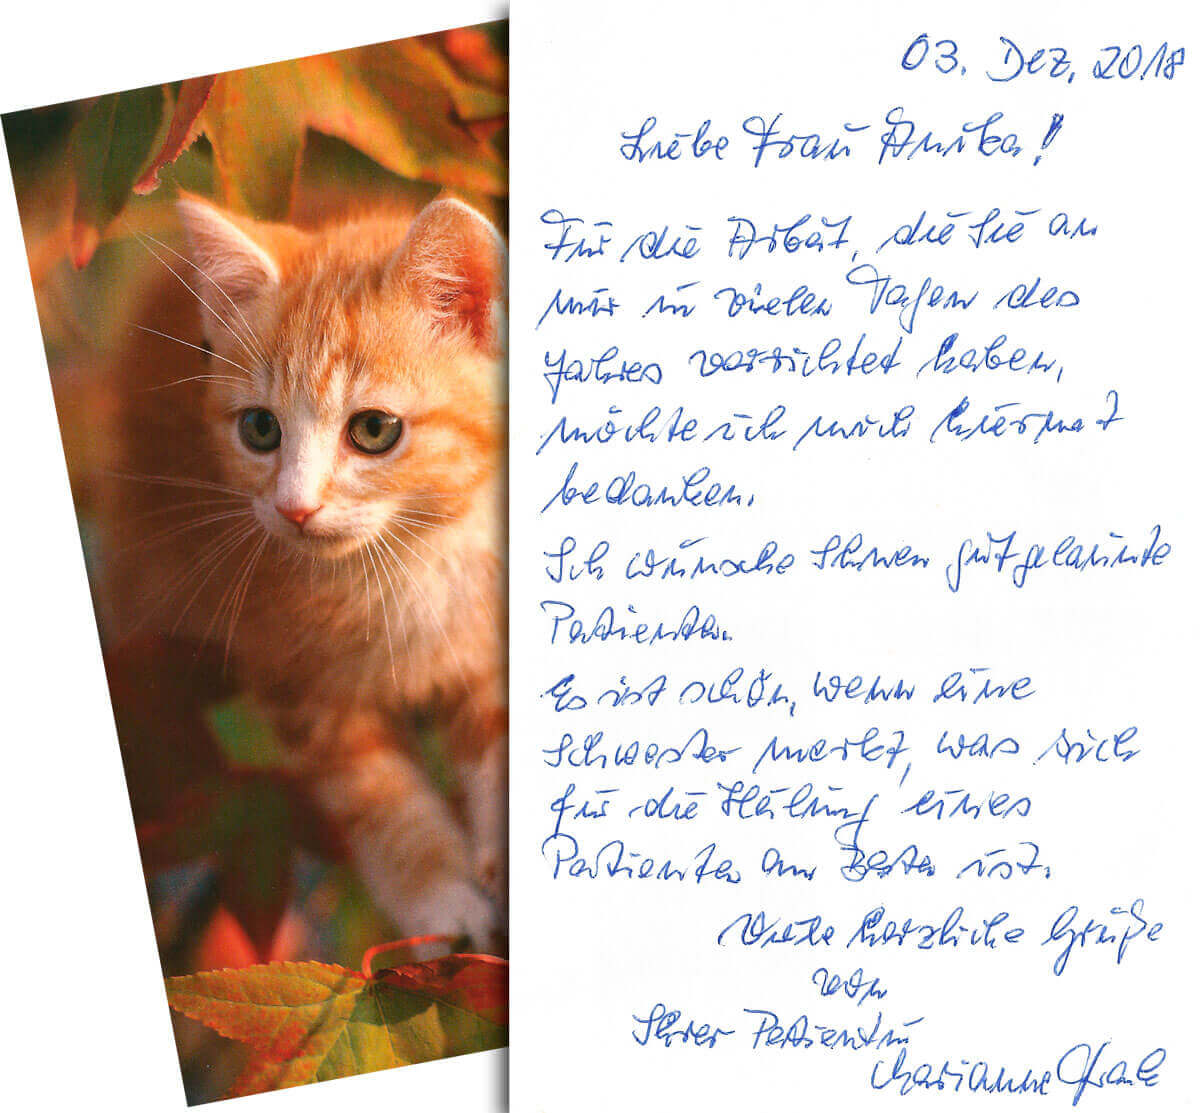 03. Dez. 2018
Liebe Frau Anika!
Für die Arbeit, die Sie an
mir in vielen Tagen des
Jahres verrichtet haben,
möchte ich mich hiermit
bedanken.
Ich wünsche Ihnen gutgelaunte
Patienten.
Es ist schön, wenn eine
Schwester merkt, was sich
für die Heilung eines
Patienten am Besten ist.
Viele herzliche Grüße
von
Ihrer Patientin
Marianne